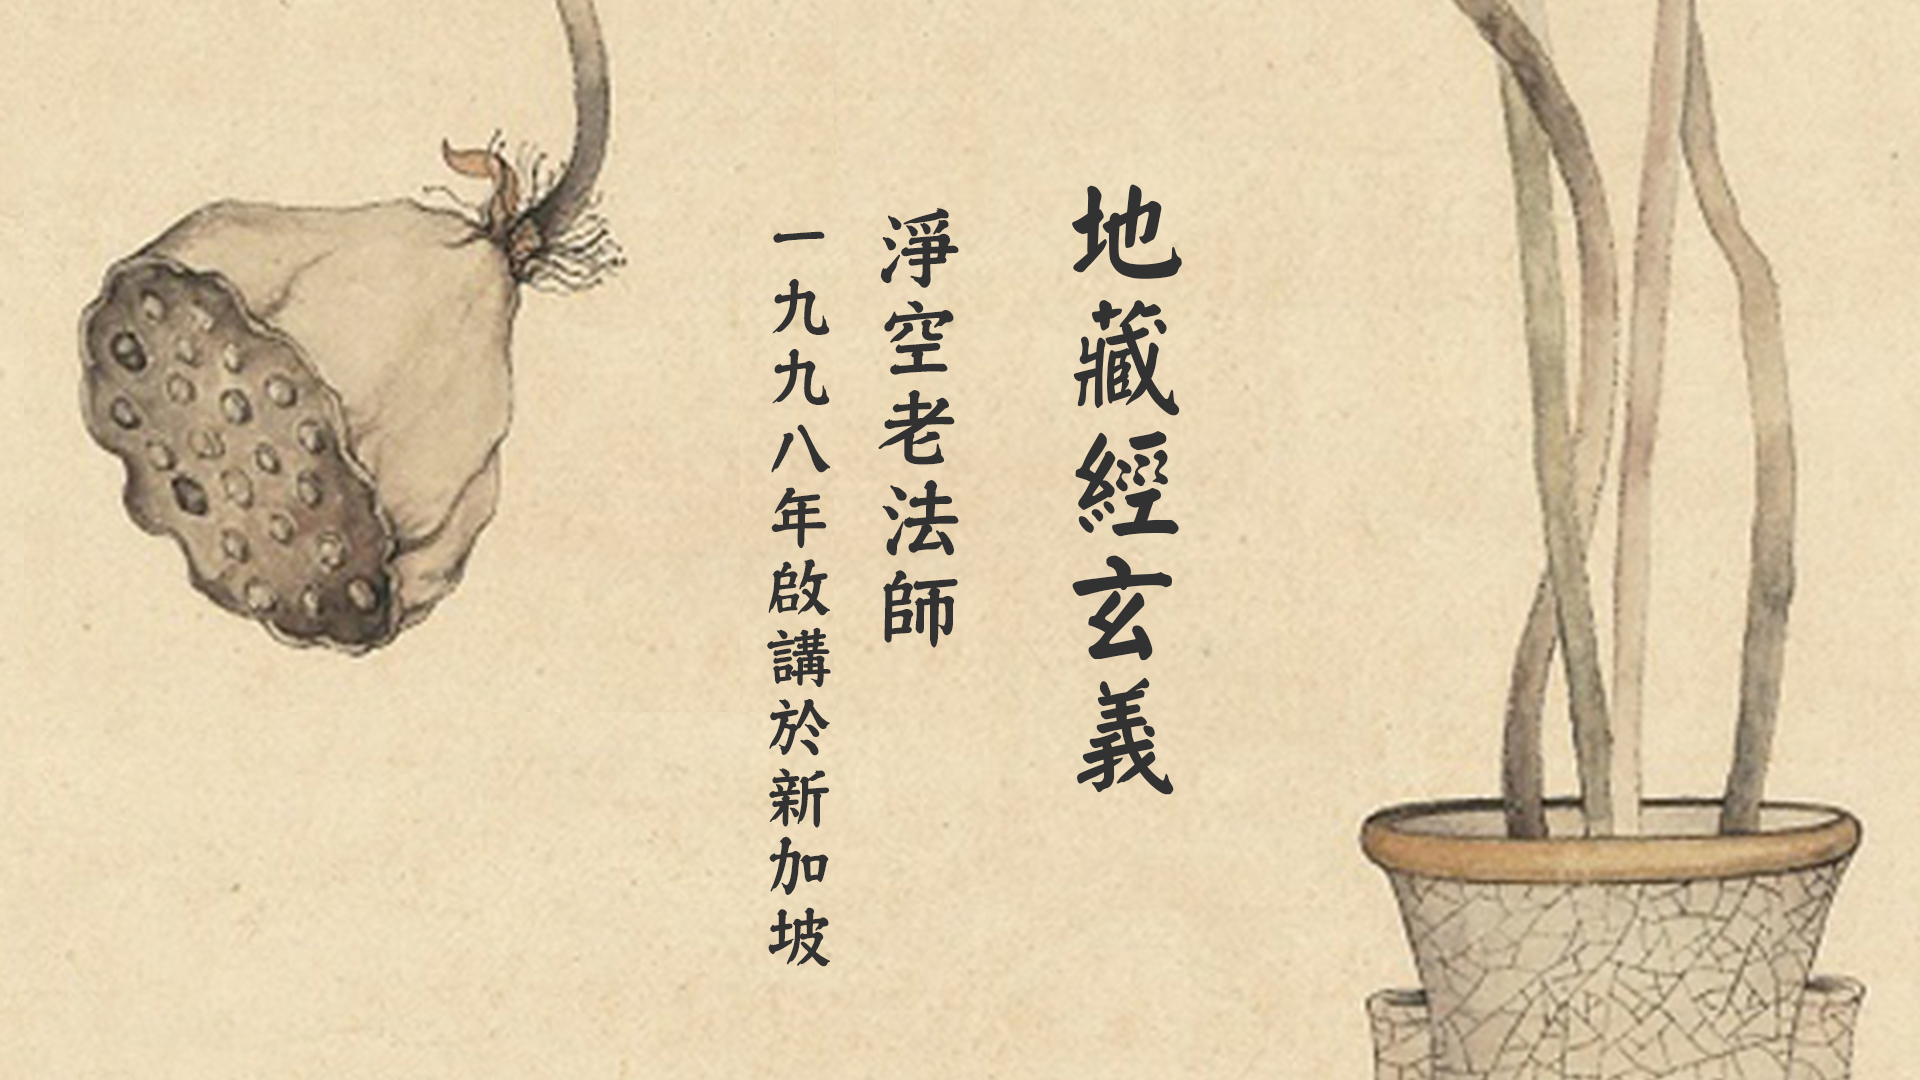 地藏經玄義
淨空老法師
一九九八年啟講於新加坡